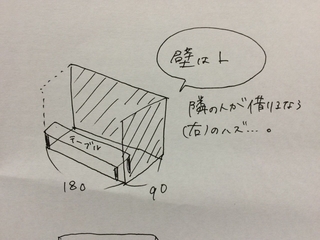 壁はト
隣の人が借りるなら
(右)のハズ…。
テーブル
180
90